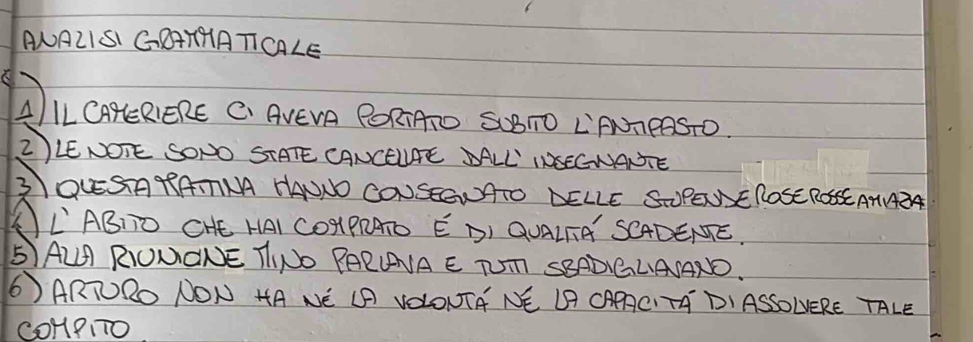 ANALISI GRAMMATICALE
1) IL CAMERIERE CI AVEVA PORTATO SUBITO L'ANTIPASTO.
2) LE NOTE SONO STATE CANCELLATE DALL'INSEGNANTE
3) QUESTA MATTINA HANNO CONSEGNATO DELLE STUPENDE ROSE ROSSE A MIA ZIA
4) L'ABITO CHE HAI COMPRATO É DI QUALITÁ SCADENTE.
5) ALLA RIUNIONE TINO PARLAVA E TUTTI SBADIGLIAVANO.
6) ARTURO NON HA NÉ LA VOLONTÁ NÉ LA CAPACITÁ DI ASSOLVERE TALE
COMPITO.